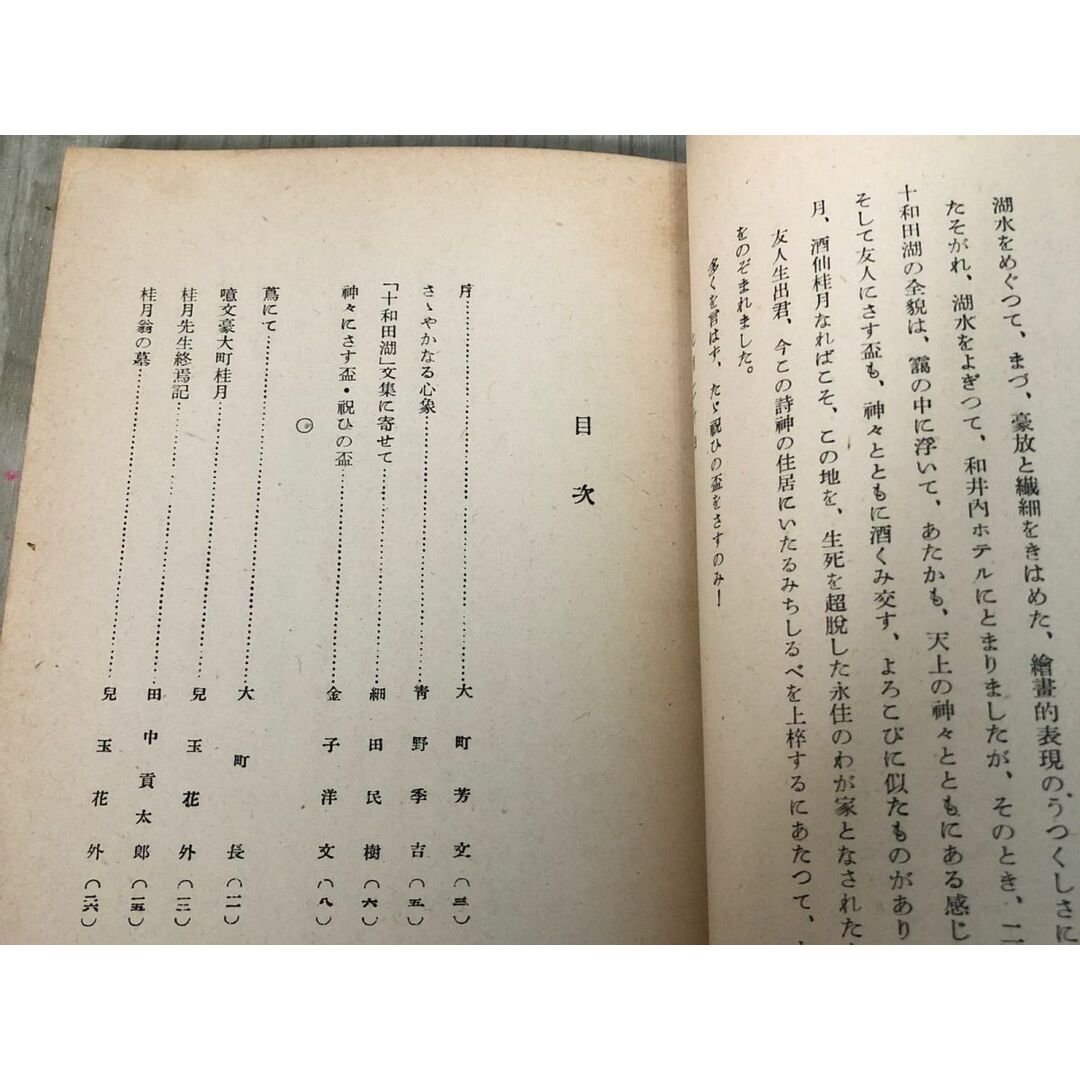 湖水をめぐつて、まづ、豪放と纖細をきはめた、繪畫的表現のうつくしさに
たそがれ、湖水をよぎつて、和井内ホテルにとまりましたが、そのとき、二
十和田湖の全貌は、靄の中に浮いて、あたかも、天上の神々とともにある感じ
そして友人にさす盃も、神々とともに酒くみ交す、よろこびに似たものがあり
月、酒仙桂月なればこそ、この地を、生死を超脱した永住のわが家となされた
友人生出君、今この詩神の住居にいたるみちしるべを上梓するにあたつて、
をのぞまれました。
多くを言はず、たゞ祝ひの盃をさすのみ!
目次
序……大町芳文(三)
さゝやかなる心象……靑野季吉(五)
「十和田湖」文集に寄せて……細田民樹(六)
神々にさす盃・祝ひの盃……金子洋文(八)
○
蔦にて……大町長(一一)
噫文豪大町桂月……兒玉花外(一三)
桂月先生終焉記……田中貢太郎(一五)
桂月翁の墓……兒玉花外(二六)